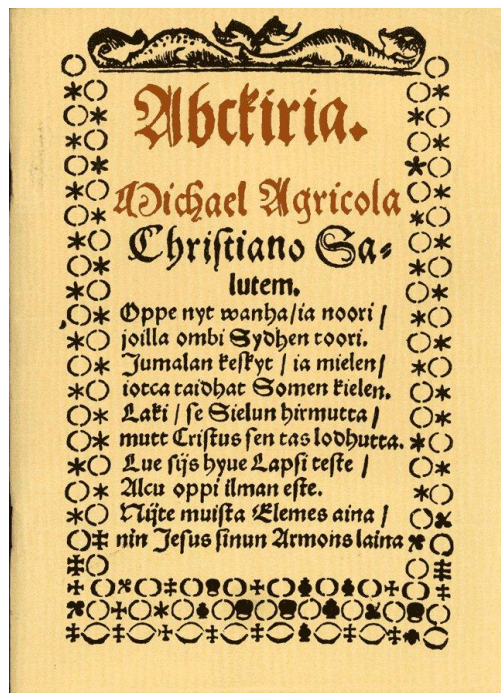 Abckiria.
Michael Agricola
Chriſtiano Sa⸗
lutem.
Oppe nyt wanha/ia noori /
joilla ombi Sydhen toori.
Jumalan keſkyt / ia mielen/
iotca taidhat Somen kielen.
Laki / ſe Sielun hirmutta /
mutt Criſtus ſen tas lodhutta.
Lue ſijs hyue Lapſi teſte /
Alcu oppi ilman eſte.
Nijte muiſta Elemes aina /
nin Jeſus ſinun Armons laina